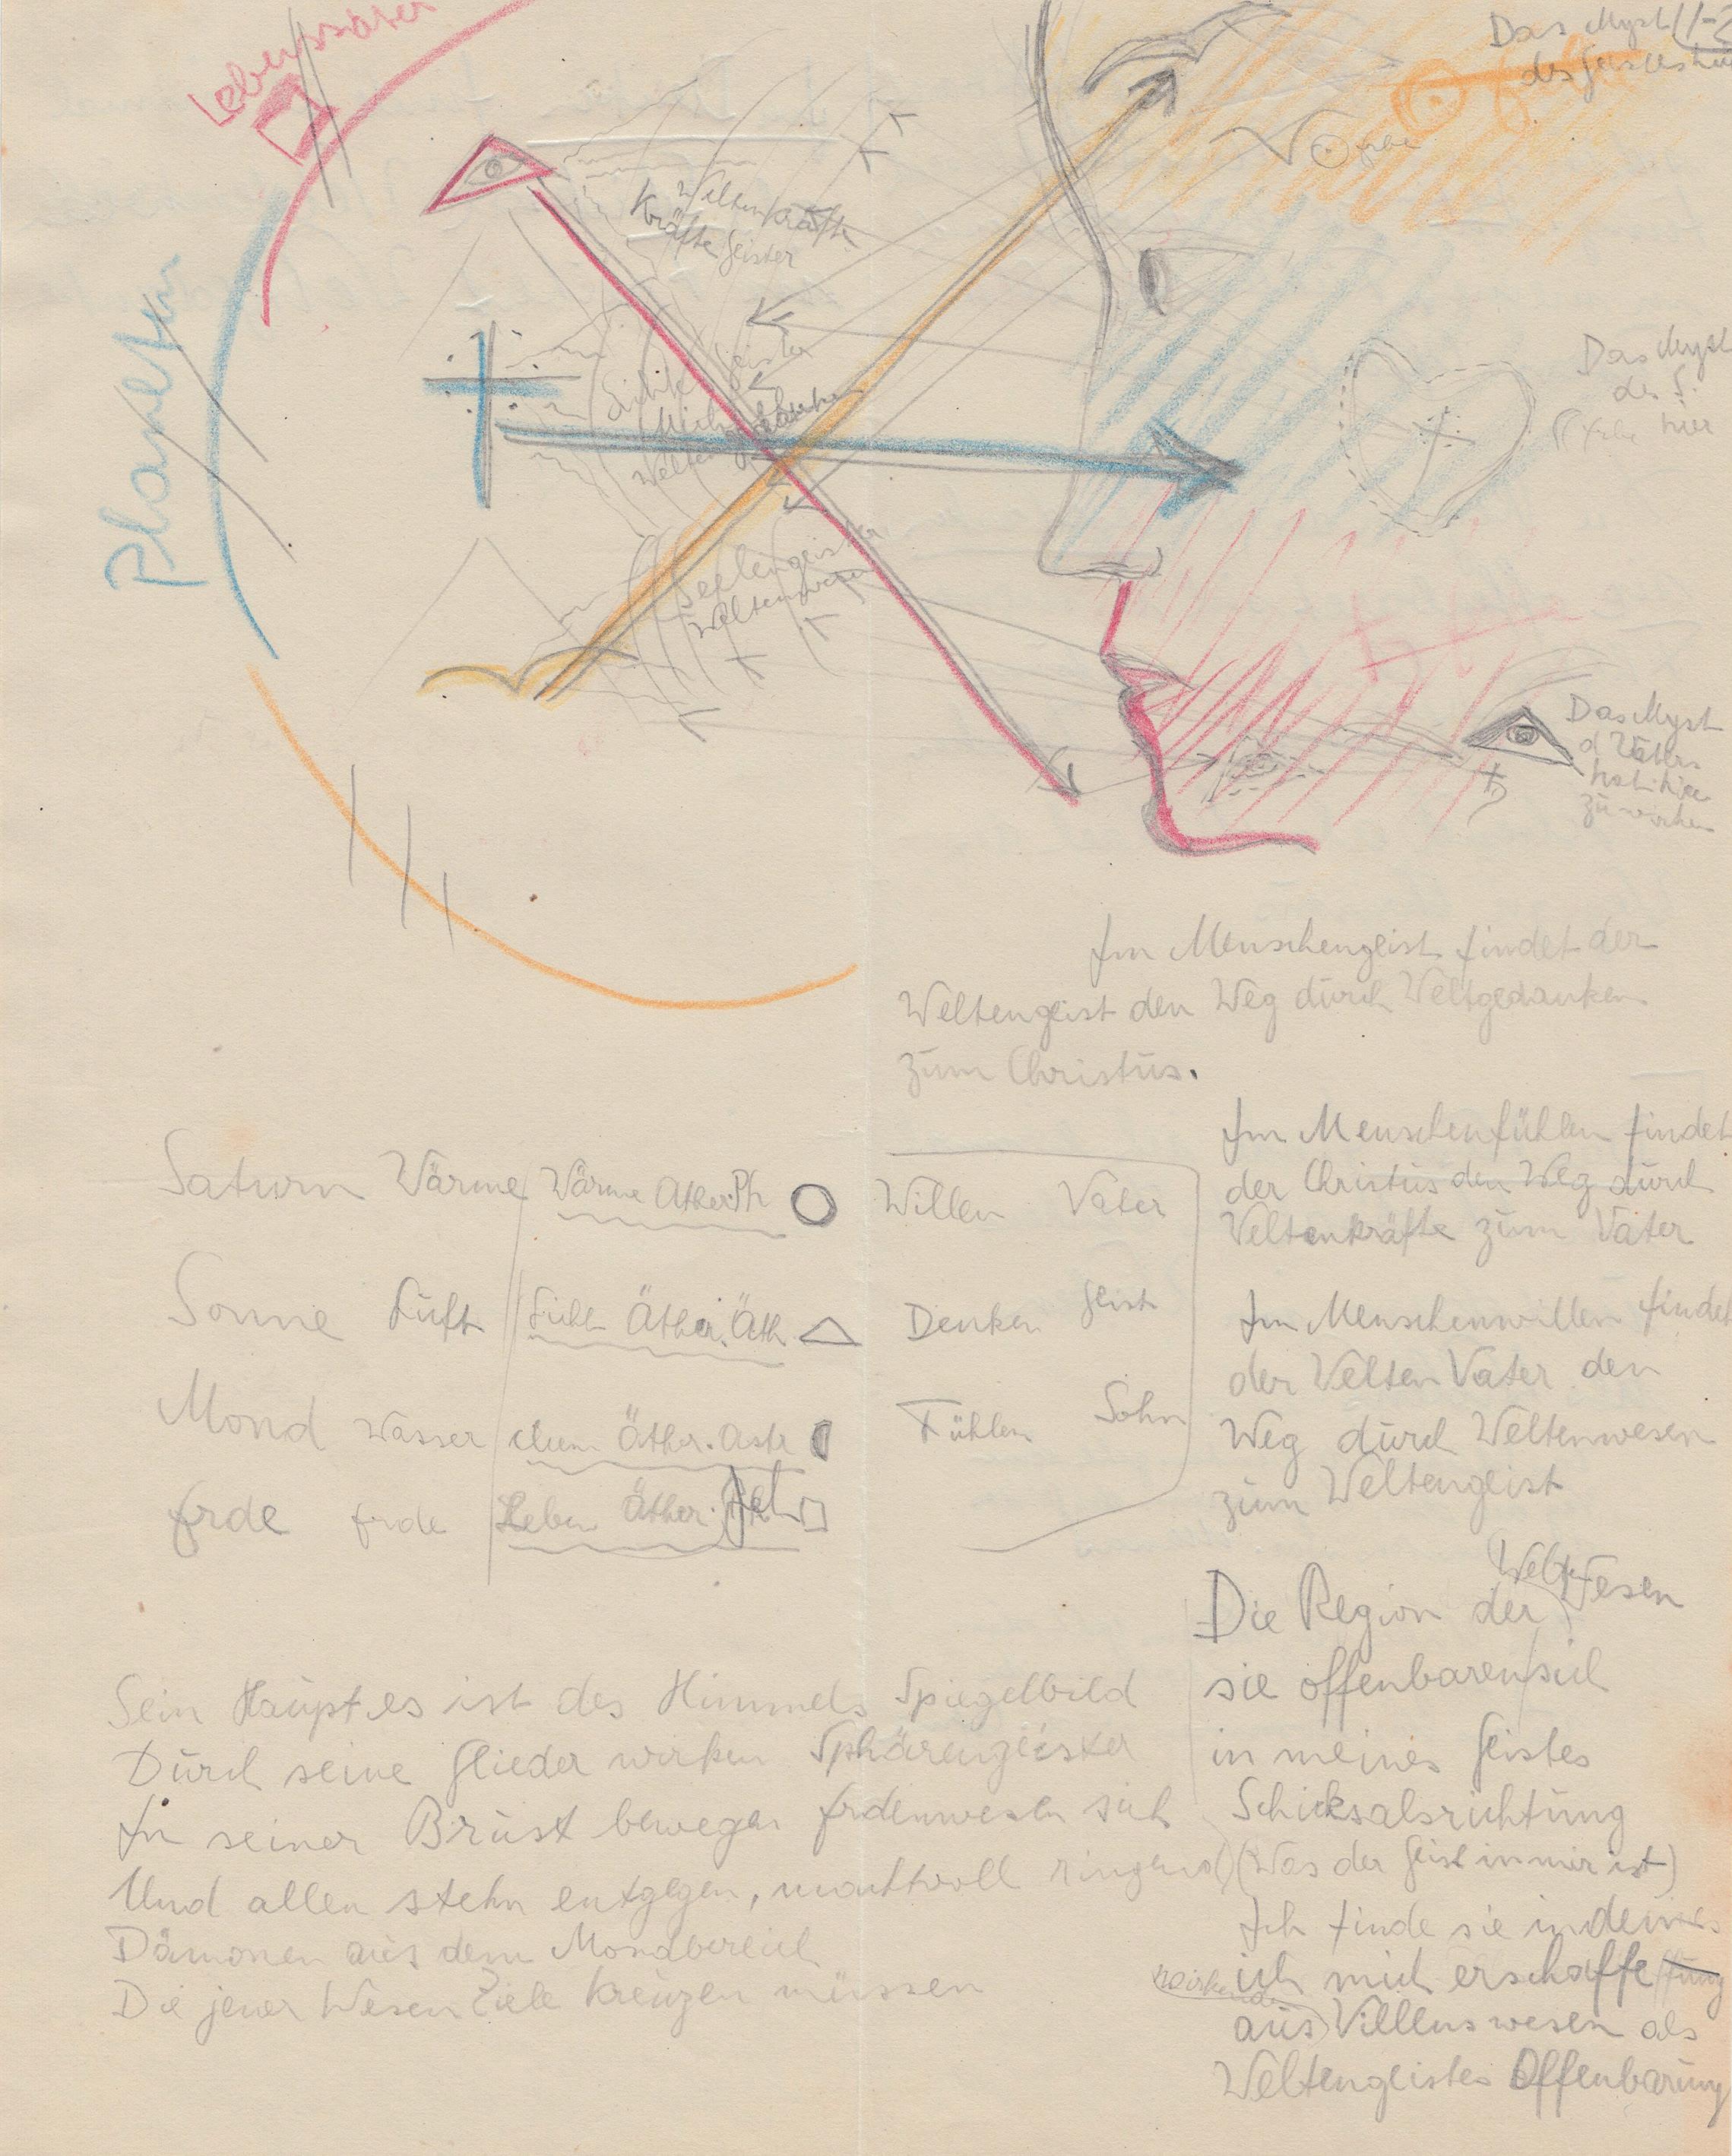 Das Myst
des Geistes hier
Erde
Planeten
Weltenkräfte
Kräfte Geister
geister
Weltengedanken
Seelengeister
Weltenwesen
Das Myst
des S.
hier
Das Myst
d Vaters
hat hier
zu wirken
Im Menschengeist findet der
Weltengeist den Weg durch Weltgedanken
zum Christus.
Im Menschenfühlen findet
der Christus den Weg durch
Weltenkräfte zum Vater
Im Menschenwillen findet
der Welten Vater den
Weg durch Weltenwesen
zum Weltengeist
Saturn Wärme Wärme Äther Ph Willen Vater
Sonne Luft Licht Äther. Äth Denken Geist
Mond Wasser chem Äther. Astr Fühlen Sohn
Erde Erde Leben Äther.
Die Region der Welten Wesen
sie offenbaren sich
in meines Geistes
Schicksalsrichtung
(Was der Geist in mir ist)
Ich finde sie indem
ich mich erschaffe
wirkend
aus Willenswesen als
Weltengeistes Offenbarung
Sein Haupt es ist des Himmels Spiegelbild
Durch seine Glieder wirken Sphärengeister
In seiner Brust bewegen Erdenwesen sich
Und allen stehn entgegen, machtvoll ringend
Dämonen aus dem Mondbereich
Die jener Wesen Ziele kreuzen müssen